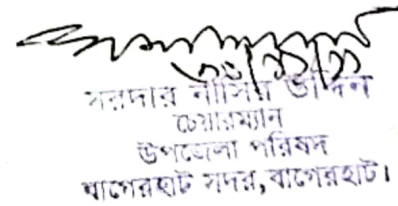 সরদার নাসির উদ্দিন
চেয়ারম্যান
উপজেলা পরিষদ
বাগেরহাট সদর, বাগেরহাট।